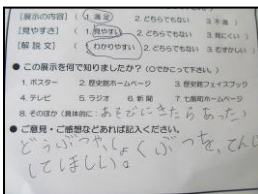 [展示の内容] (1. 満足 2. どちらでもない 3. 不満 )
[見やすさ] (1. 見やすい 2. どちらでもない 3. 見にくい )
[解 説 文] (1. わかりやすい 2. どちらでもない 3. むずかしい )
● この展示を何で知りましたか？（○でかこって下さい。）
1. ポスター 2. 歴史館ホームページ 3. 歴史館フェイスブック
4. テレビ 5. ラジオ 6. 新 聞 7. 七飯町ホームページ
8. そのほか（具体的に：あそびにきたらあった）
● ご意見・ご感想などあれば記入ください。
どうぶつや、しょくぶつを、てんじ
してほしい。